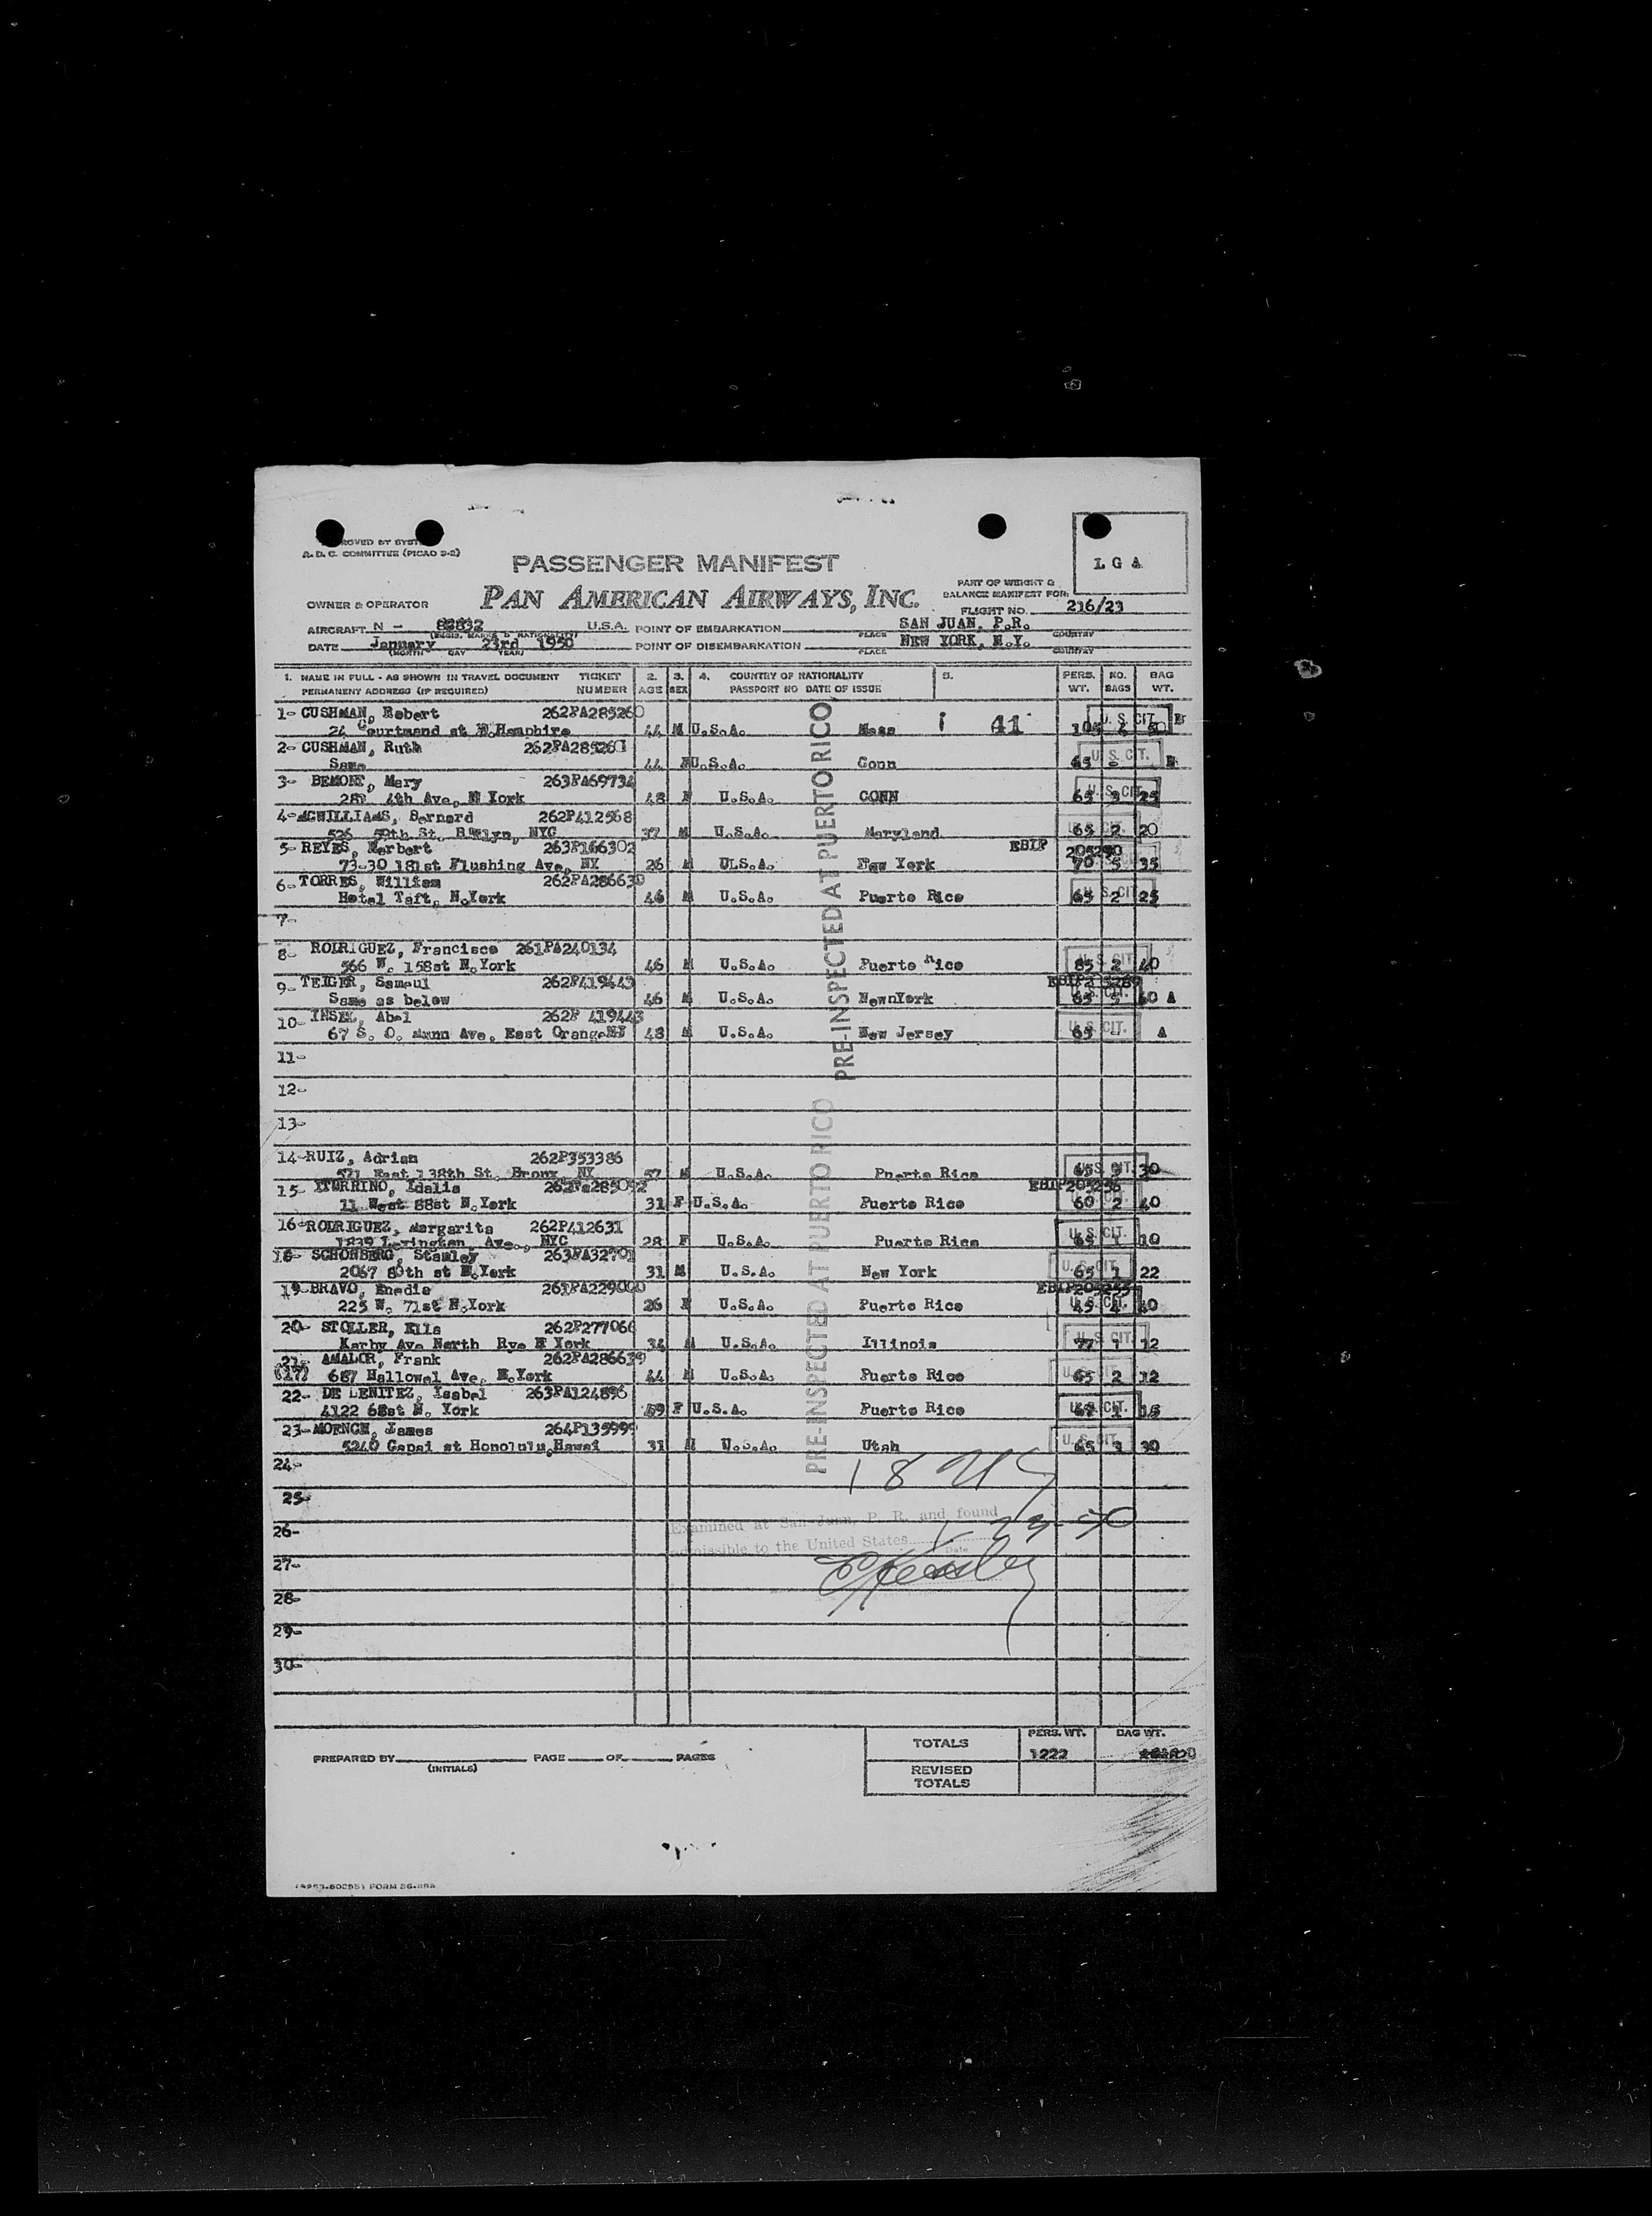 A.D.C. COMMITTEE (PICAO 9-2)
LGA
PASSENGER MANIFEST
PAN AMERICAN AIRWAYS, INC.
PART OF WEIGHT &
BALANCE MANIFEST FOR:
OWNER & OPERATOR
FLIGHT NO. 216/23
AIRCRAFT N - 88832 U.S.A. POINT OF EMBARKATION SAN JUAN, P.R.
(REGIS. MARKS & NATIONALITY) PLACE COUNTRY
DATE January 23rd 1950 POINT OF DISEMBARKATION NEW YORK, N.Y.
(MONTH DAY YEAR) PLACE COUNTRY
1. NAME IN FULL - AS SHOWN IN TRAVEL DOCUMENT TICKET 2. 3. 4. COUNTRY OF NATIONALITY 5. PERS. NO. BAG
PERMANENT ADDRESS (IF REQUIRED) NUMBER AGE SEX PASSPORT NO DATE OF ISSUE WT. BAGS WT.
1- CUSHMAN, Robert 262PA285260 41 U.S. CIT.
44 M U.S.A. Mass
2- CUSHMAN, Ruth 262PA285261 U.S. CIT.
Same 44 F U.S.A. Conn 65
3- BEMONT, Mary 263PA69734 U.S. CIT.
4th Ave, N York 48 F U.S.A. CONN 65 3 25
4- MCWILLIAMS, Bernard 262P412568
526 59th St. NYC 37 M U.S.A. Maryland 65 2 20
5- REYES, Herbert 263P166302 EBIP
73-30 181st Flushing Ave, NY 26 M ULS.A. New York 70 5 35
6- TORRES, William 262PA286630 U.S. CIT.
Hotel Taft, N.York 46 M U.S.A. Puerto Rico 65 2 25
7-
8- RODRIGUEZ, Francisco 261PA240134 U.S. CIT.
566 W. 158st N.York 46 M U.S.A. Puerto Rico 85 2 40
9- TEIGER, Samaul 262P419443
Same as below 46 M U.S.A. NewnYork 65 5 60 A
10- INSEL, Abel 262P 419443 U.S. CIT.
67 S. O. Munn Ave, East Orange NJ 48 M U.S.A. New Jersey 65 - A
11-
12-
13-
14- RUIZ, Adrian 262P353386 U.S. CIT.
571 East 138th St. Bronx NY 57 M U.S.A. Puerto Rico 65 3 30
15- ITURRINO, Idalia EBIP205256
11 West 88st N.York 31 F U.S.A. Puerto Rico 60 2 40
16- RODRIGUEZ, Margarita 262P412631 U.S. CIT.
1839 Lexington Ave., NYC 28 F U.S.A. Puerto Rico 65 1 10
18- SCHONBERG, Stanley 263PA32701 U.S. CIT.
2067 80th st N.York 31 M U.S.A. New York 65 1 22
19- BRAVO, Enedia 261PA229000 EBIP205255
225 W. 71st N.York 26 F U.S.A. Puerto Rico 45 4 40
20- STOLLER, Ella 262P277066 U.S. CIT.
Karby Ave North Rye N York 34 M U.S.A. Illinois 77 1 12
21- AMALOR, Frank 262PA286639
(17) 687 Hallowel Ave, N.York 44 M U.S.A. Puerto Rico 65 2 12
22- DE LENITEZ, Isabel 263PA124896
4122 68st N. York 59 F U.S.A. Puerto Rico 67 1 16
23- MOENCH, James 264P135999 U.S. CIT.
5240 Gapai st Honolulu, Hawai 31 M U.S.A. Utah 65 3 30
PRE-INSPECTED AT PUERTO RICO
PRE-INSPECTED AT PUERTO RICO
24-
25-
26-
27-
28-
29-
30-
Examined at San Juan, P. R. and found
admissible to the United States 1-23-50
Date
TOTALS PERS. WT. BAG WT.
1222
PREPARED BY PAGE OF PAGES
(INITIALS)
REVISED
TOTALS